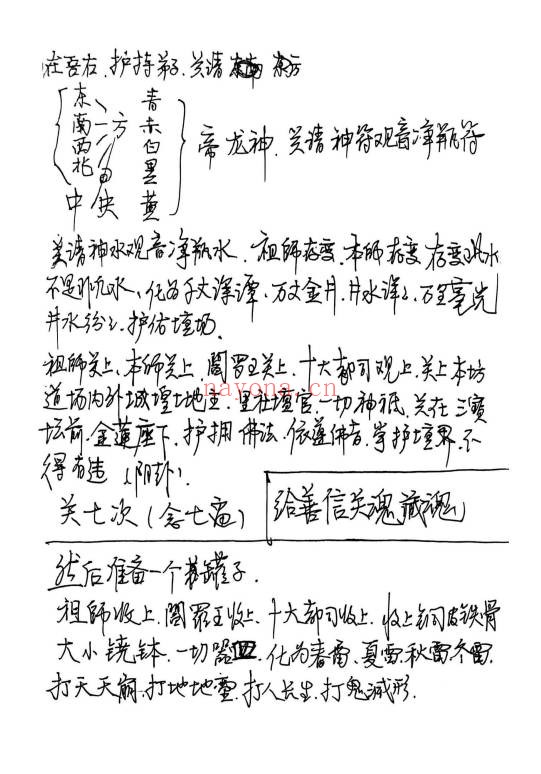 在吾右、护持弟子、关请 东方
东 青
南 方 赤
西 白
北 黑
中央 黄
帝龙神、关请神符观音净瓶符
关请神水观音净瓶水、祖師存变、本师存变、存变此水
不是非凡水、化为千丈深潭、万丈金井、井水深深、万里毫光
井水纷纷、护佑壇场、
祖师关上、本师关上、閻罗王关上、十大都司观上、关上本坊
道场内外城堭土地主、里社壇官、一切神祇、关在三寶
坛前、金莲座下、护拥佛法、依遵佛旨、掌护境界、不
得有违 (阴卦)、
关七次(念七遍)
给善信关魂藏魂
nayona.cn
然后准备一个 罐子、
祖師收上、閻羅王收上、十大都司收上、收上铜皮铁骨
大小铙钵、一切器皿、化为春雷、夏雷、秋雷、冬雷、
打天天崩、打地地 、打人长生、打鬼滅形、